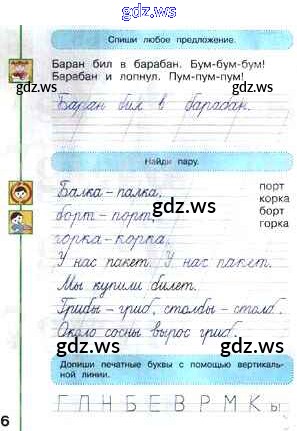 gdz.ws
Спиши любое предложение.
Баран бил в барабан. Бум-бум-бум!
Барабан и лопнул. Пум-пум-пум!
gdz.ws gdz.ws
Баран бил в барабан.
Найди пару.
Балка – палка,
порт
gdz.ws
корка
борт – порт,
борт
горка – корка.
горка
У нас пакет. У нас пакет.
gdz.ws gdz.ws
Мы купили билет.
Грибы – гриб, столбы – столб.
Около сосны вырос гриб.
gdz.ws gdz.ws
Допиши печатные буквы с помощью вертикаль-
ной линии.
Г П Н Б Е В Р М К Ы
6